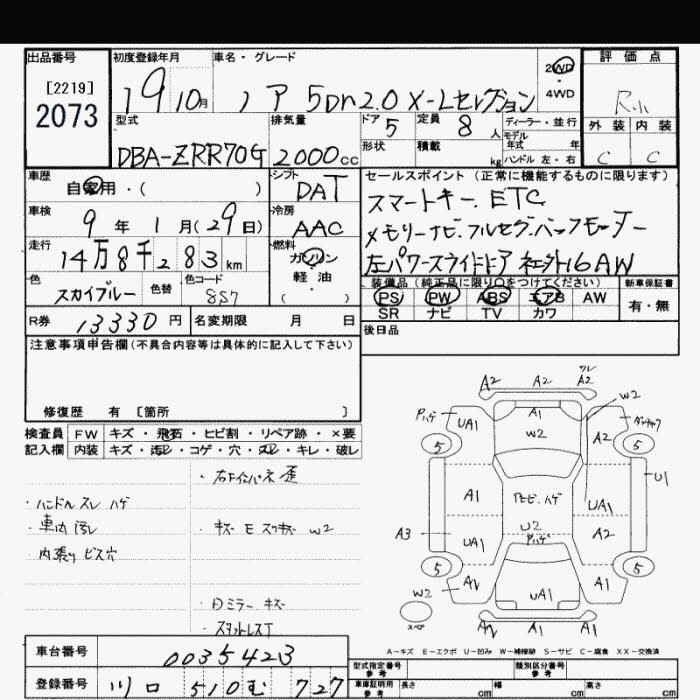 出品番号
[2219]
2073
初度登録年月
19 10月
車名・グレード
ノア 5Dr 2.0 X-Lセレクション
2WD
・
4WD
評価点
外装 内装
C C
型式
DBA-ZRR70G
排気量
2000cc
ドア 5
定員 8人
形状
積載 kg
ディーラー・並行
モデル年式 年式
ハンドル 左・右
車歴
自家用・( )
シフト
DAT
車検
9年 1月(29日)
冷房
AAC
走行
14万8千283km
燃料
ガソリン
・
軽・油
( )
色
スカイブルー
色替
色コード
8S7
セールスポイント(正常に機能するものに限ります)
スマートキー、ETC
メモリーナビ、フルセグ、バックモニター
左パワースライドドア 社外16AW
装備品(純正品に限り○をつけてください)
PS PW ABS エアB AW
SR ナビ TV カワ
新車保証書
有・無
R券 13330円
名変期限 月 日
後日品
注意事項申告欄(不具合内容等は具体的に記入して下さい)
修復歴 有 [箇所 ]
検査員 FW キズ・飛石・ヒビ割・リペア跡・×要
記入欄 内装 キズ・汚レ・コゲ・穴・スレ・キレ・破レ
・ハンドル スレ ハゲ
・車内 汚レ
・内張り ビス穴
・キズ E スリキズ W2
・日ミラー キズ
・スタットレスT
A2 A2 A2
W2
UA1 A1 A2
W2
5 5
U1
A1 UA1
A3
W2
UA1 A2
5 5
W2
UA1 A1
A1 A1
A-キズ E-エクボ U-凹み W-補修跡 S-サビ C-腐食 XX-交換済
車台番号
0035423
登録番号
川口 510 む 727
型式指定番号
参考
類別区分番号
参考
車庫証明用
参考
長さ cm 幅 cm 高さ cm